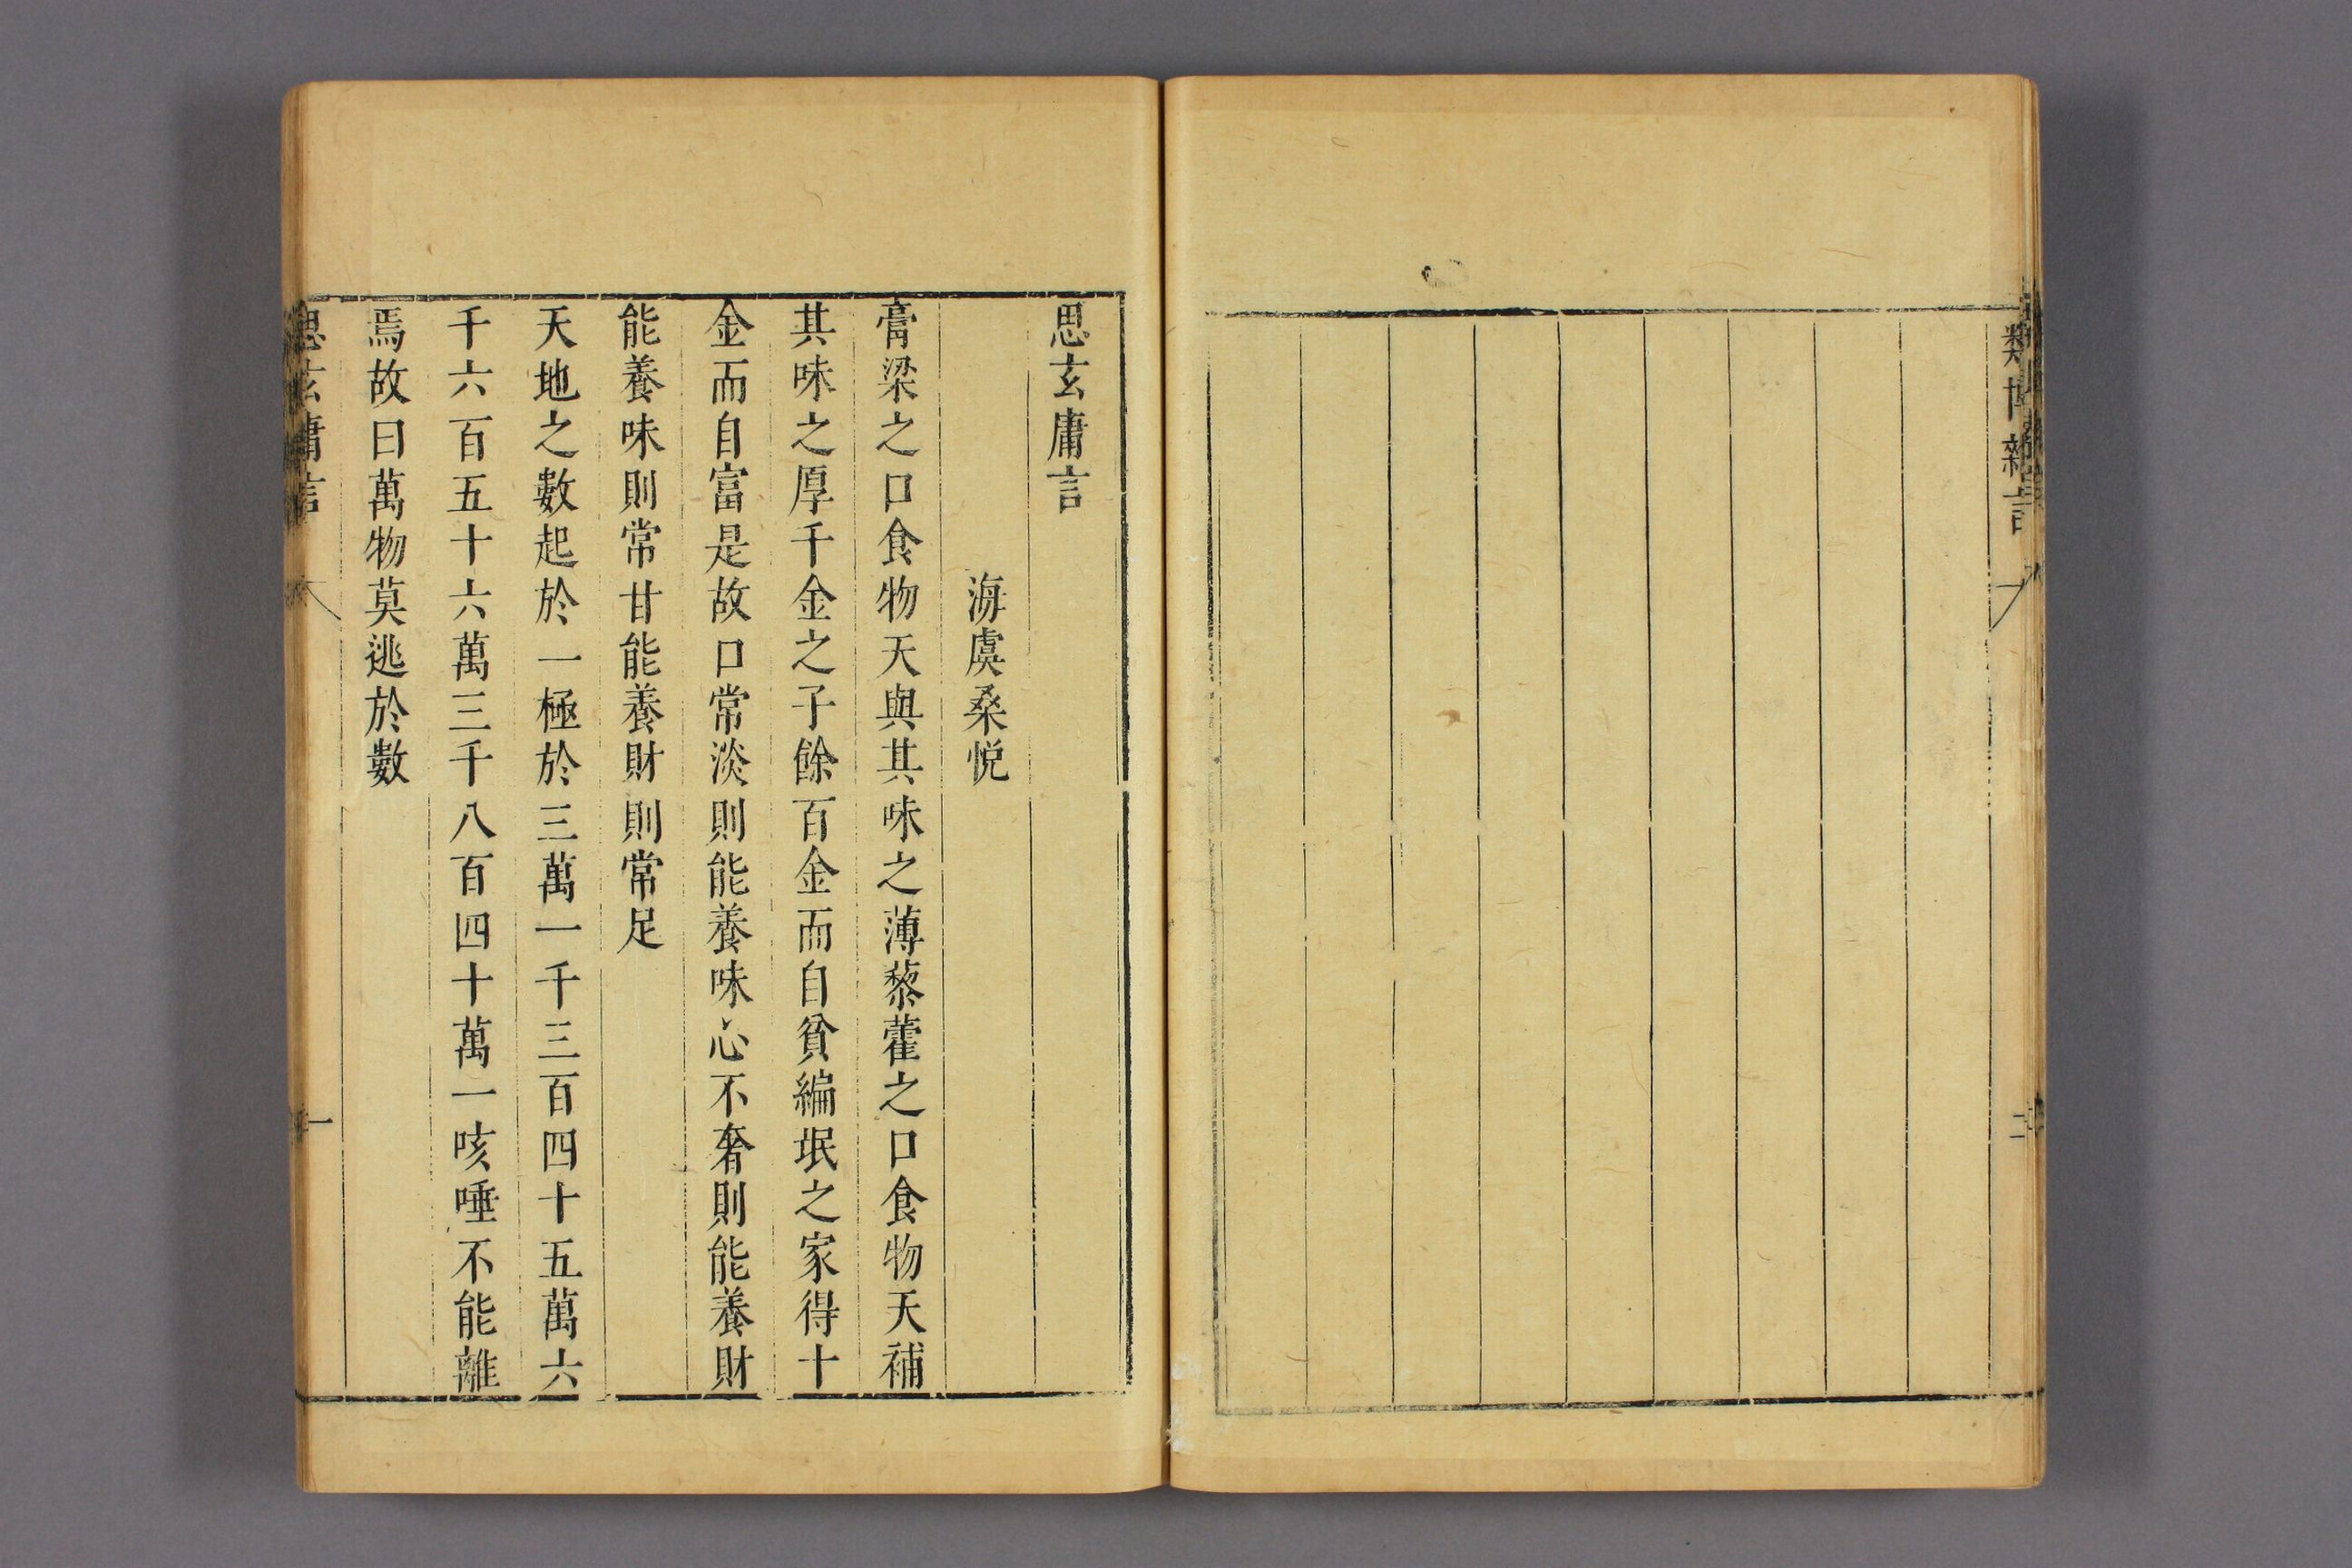 類博雜言
二
思玄庸言
海虞桑悅
膏梁之口食物天與其味之薄藜藿之口食物天補
其味之厚千金之子餘百金而自貧編氓之家得十
金而自富是故口常淡則能養味心不奢則能養財
能養味則常甘能養財則常足
天地之數起於一極於三萬一千三百四十五萬六
千六百五十六萬三千八百四十萬一咳唾不能離
焉故曰萬物莫逃於數
思玄庸言
一